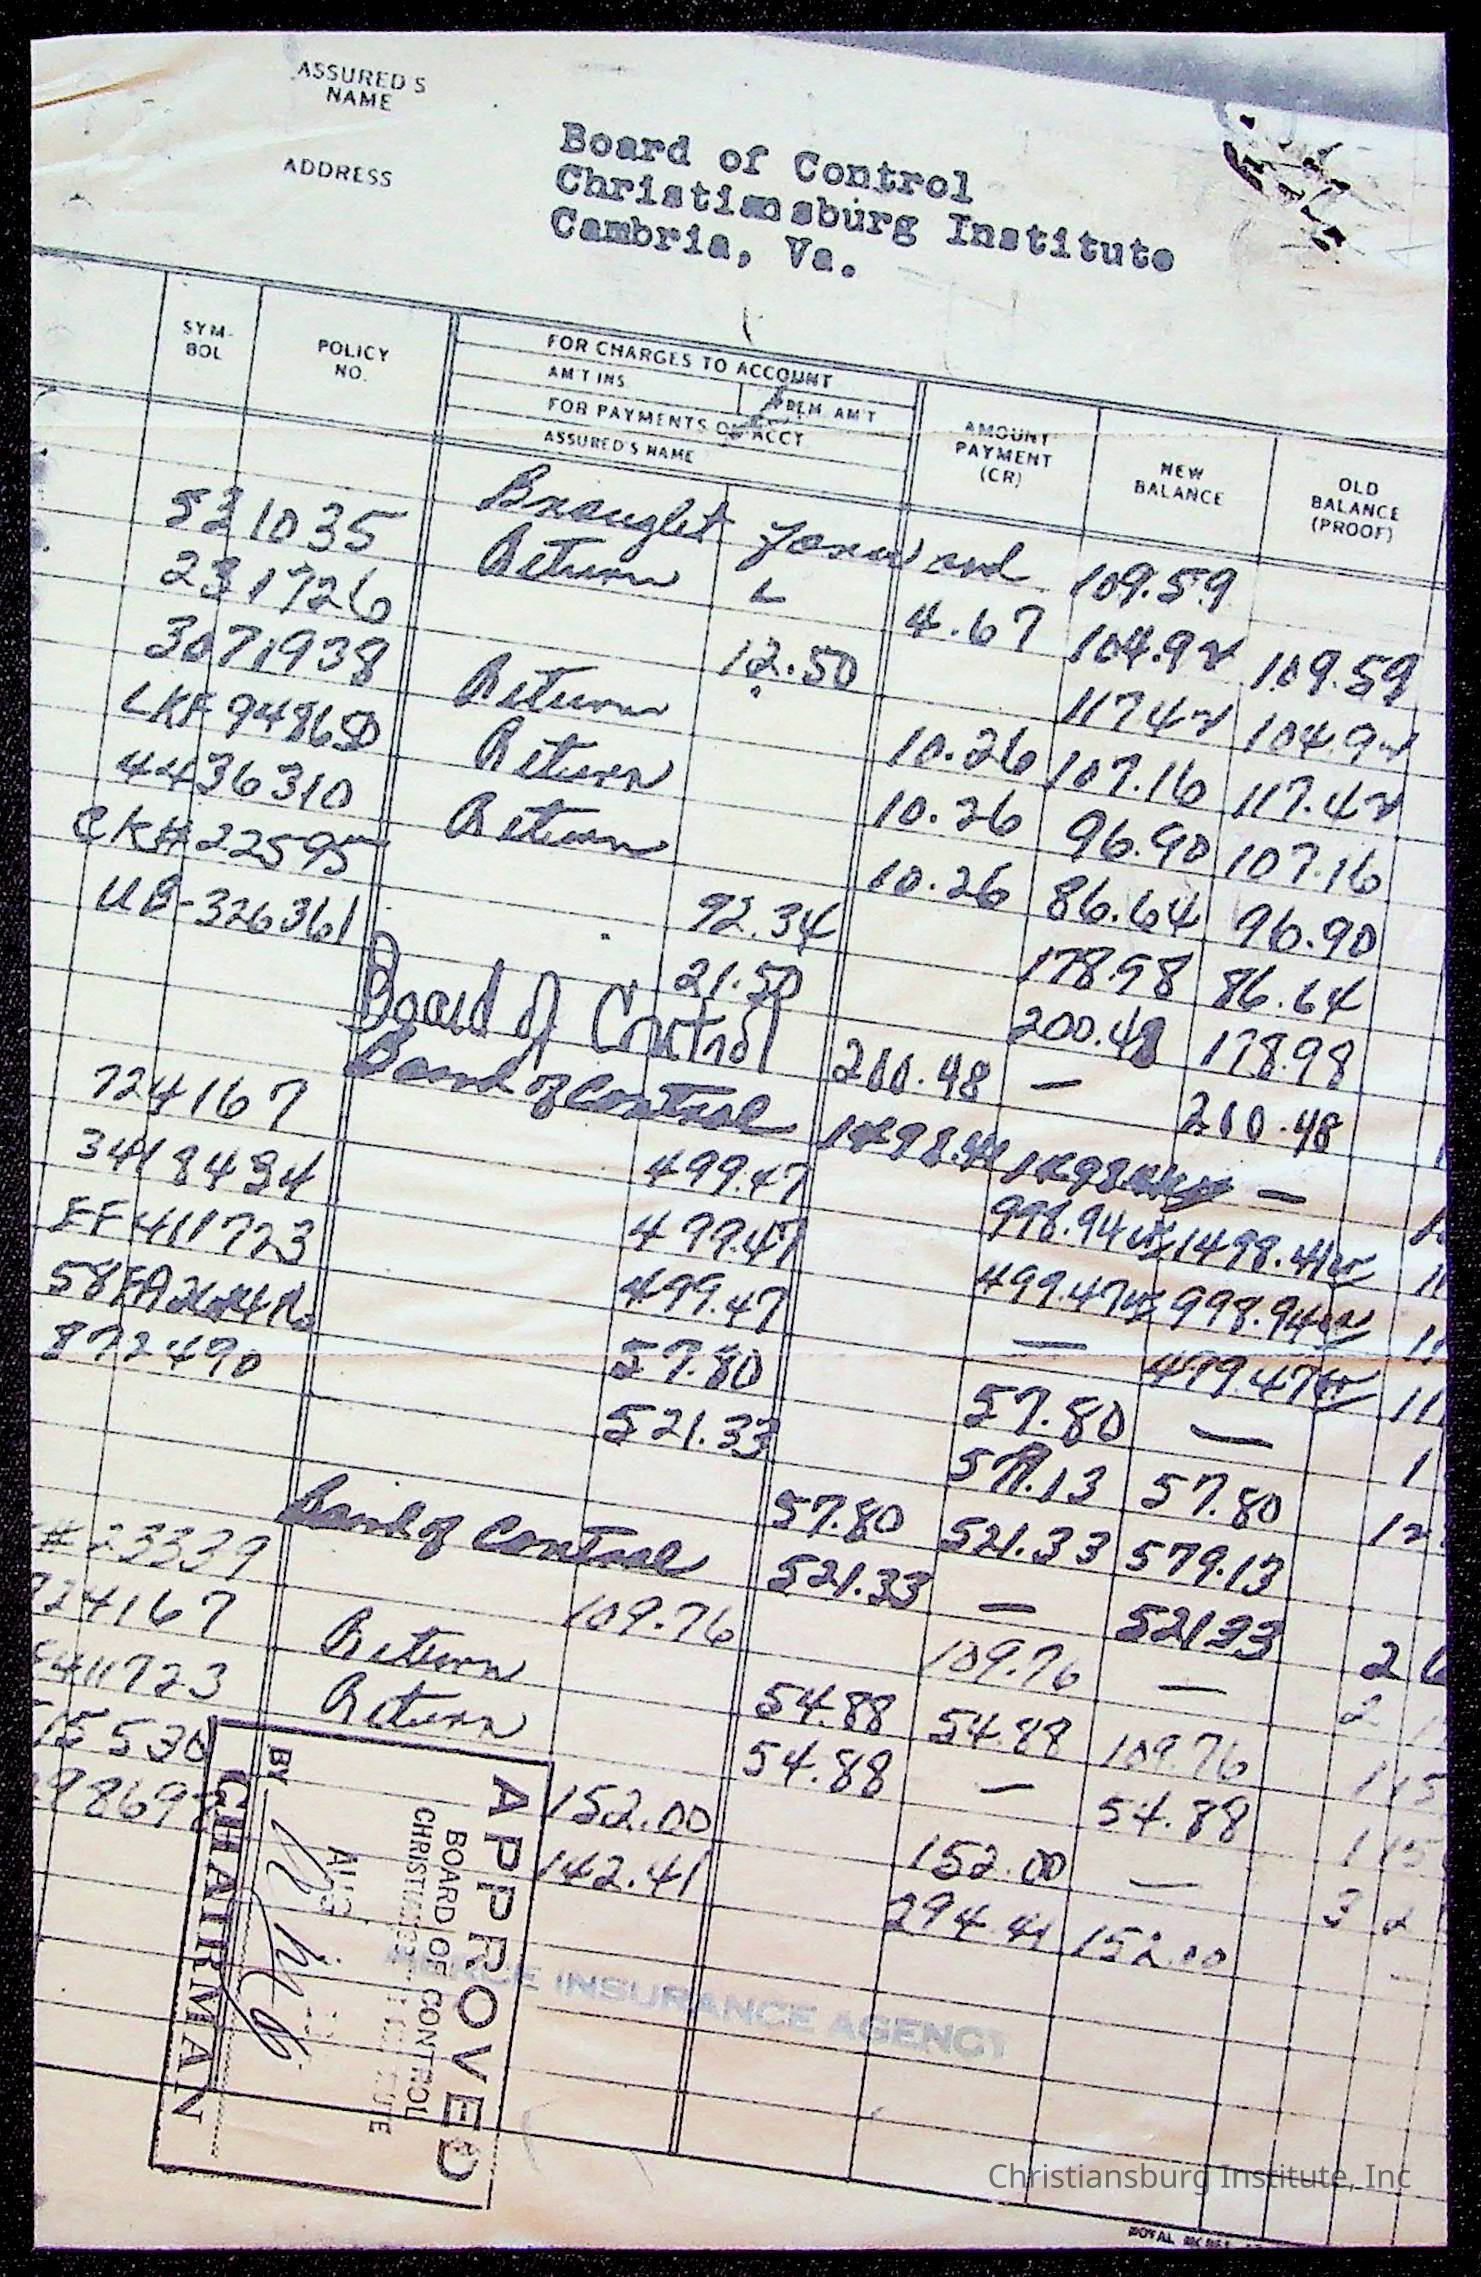 ASSURED'S
NAME
ADDRESS
Board of Control
Christiansburg Institute
Cambria, Va.
SYM-
BOL
POLICY
NO.
FOR CHARGES TO ACCOUNT
AM'T INS
PREM. AM'T
FOR PAYMENTS ON ACCT
ASSURED'S NAME
AMOUNT
PAYMENT
(CR)
NEW
BALANCE
OLD
BALANCE
(PROOF)
Brought Forward 109.59
531035 Return 4.67 104.92 109.59
231726 12.50 117.42 104.92
3071938 Return 10.26 107.16 117.42
Return 10.26 96.90 107.16
4436310 Return 10.26 86.64 96.90
22595 92.34 178.98 86.64
UB-326361 21.50 200.48 178.98
Board of Control 200.48 — 200.48
Board of Control —
724167 499.47 998.94 1498.41
3418434 499.47 499.47 998.94
EF411723 499.47 — 499.47
57.80 57.80 —
872490 521.33 579.13 57.80
57.80 521.33 579.13
Board of Control 521.33 — 521.33
#23339 109.76 109.76 —
724167 Return 54.88 54.88 109.76
411723 Return 54.88 — 54.88
5530 152.00 152.00 —
98697 142.41 294.41 152.00
APPROVED
BOARD OF CONTROL
CHRISTIANSBURG INSTITUTE
AUG
BY
CHAIRMAN
INSURANCE AGENCY
ROYAL
Christiansburg Institute, Inc